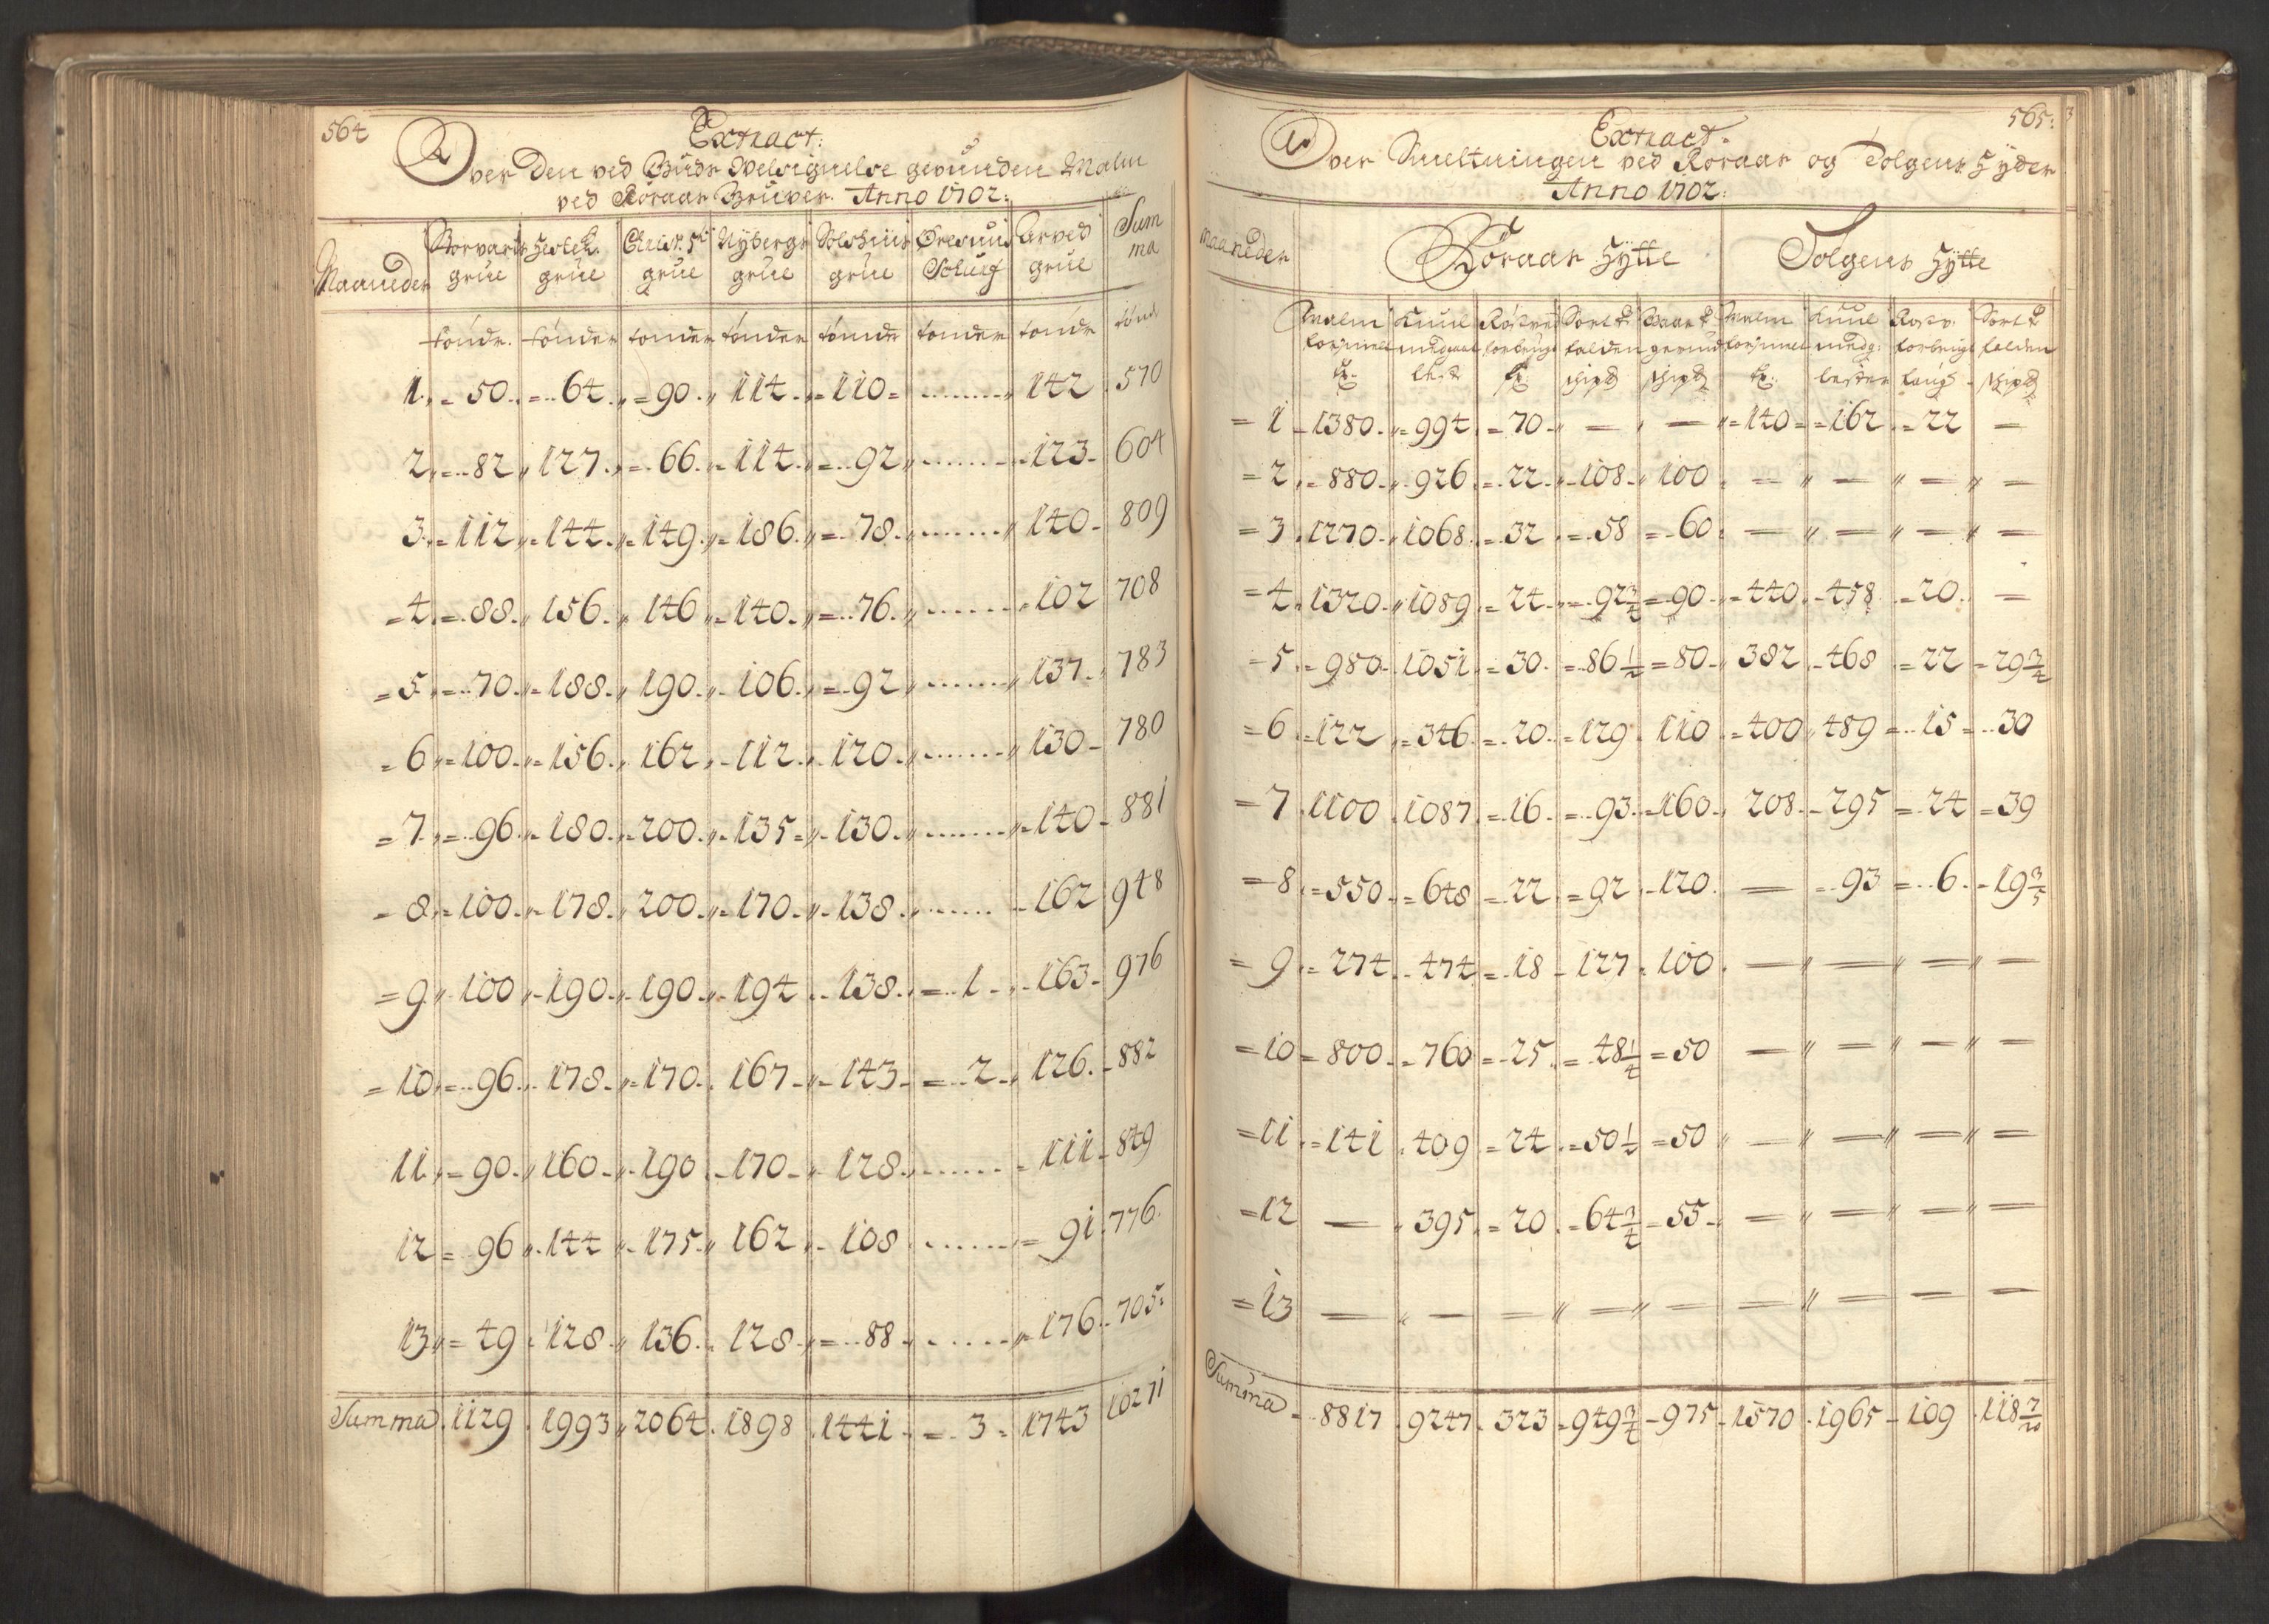 564
Extract.
Over Den ved Guds Velsignelse gevunden Malm
ved Röraas Gruver. Anno 1702.
Maaneder Storvarts grue Hestek. grue Christ. 5ti grue Nybergs grue Solskins grue Öresund Schurf Arved grue Summa
tönder. tönder tönder tönder tönder tönder tönder tönd
1. 50. 64. 90. 114. 110 ........ 142 570
2 82 127. 66. 114. 92 ........ 123 604
3. 112 144. 149. 186. 78. ........ 140 809
4 88. 156. 146 140. 76. ........ 102 708
5 70. 188. 190. 106. 92 ........ 137. 783
6 100. 156. 162 112. 120. ........ 130 780
7. 96. 180. 200. 135 130. ........ 140 881
8 100. 178. 200. 170. 138. ........ 162 948
9 100 190. 190. 194 138. 1 163 976
10 96. 178. 170. 167 143 2 126. 882
11. 90. 160 190 170 128. ........ 111 849
12 96 144 175. 162 108 ........ 91 776.
13 49 128 136. 128 88 ........ 176. 705.
Summa. 1129. 1993 2064. 1898. 1441. 3 1743 10271
565.
Extract.
Over Smeltningen ved Röraas og Tolgens Hyder
Anno 1702.
Maaneder Röraas Hytte Tolgens Hytte
Malm Kuul Röstved Sort Gaar Malm Kuul Rostv. Sort
forsmelt medgaaet forbrugt falden forsmelt medg. forbrugt falden
lest lester
1 1380. 994. 70 — — 140 162. 22 —
2 880. 926. 22. 108. 100 — — — —
3 1270. 1068. 32 58 60. — — — —
4. 1320. 1089. 24. 92¾ 90. 440. 458. 20. —
5. 980. 1051. 30. 86½ 80. 382 468 22 29¾
6. 122 346. 20. 129. 110 400 489 15 30
7 1100 1087. 16. 93. 160. 208. 295 24 39
8 550. 648 22. 92 120. — 93 6. 19⅗
9. 274. 474 18 127. 100. — — — —
10 800. 760 25. 48¼ 50 — — — —
11. 141. 409 24. 50½ 50 — — — —
12 — 395. 20. 64¾ 55. — — — —
13 — — — — — — — — —
Summa 8817. 9247. 323 949¾ 975 1570. 1965 109 118 7/20